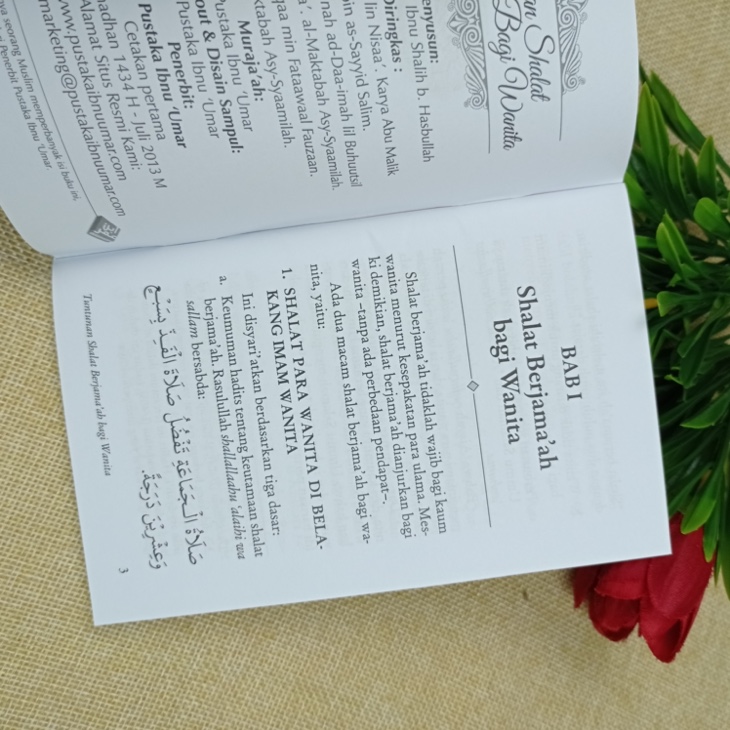 an Shalat
Bagi Wanita
enyusun:
Ibnu Shalih b. Hasbullah
Diringkas :
lin Nisaa'. Karya Abu Malik
bin as-Sayyid Salim.
nah ad-Daa-imah lil Buhuutsil
a'. al-Maktabah Asy-Syaamilah.
qaa min Fataawaal Fauzaan.
ktabah Asy-Syaamilah.
Muraja'ah:
Pustaka Ibnu 'Umar
out & Disain Sampul:
Pustaka Ibnu 'Umar
Penerbit:
Pustaka Ibnu 'Umar
Cetakan pertama
adhan 1434 H - Juli 2013 M
Alamat Situs Resmi Kami:
www.pustakaibnuumar.com
marketing@pustakaibnuumar.com
seorang Muslim memperbanyak isi buku ini,
Penerbit Pustaka Ibnu 'Umar
BAB I
Shalat Berjama'ah
bagi Wanita
Shalat berjama'ah tidaklah wajib bagi kaum
wanita menurut kesepakatan para ulama. Mes-
ki demikian, shalat berjama'ah dianjurkan bagi
wanita –tanpa ada perbedaan pendapat–.
Ada dua macam shalat berjama'ah bagi wa-
nita, yaitu:
1. SHALAT PARA WANITA DI BELA-
KANG IMAM WANITA
Ini disyari'atkan berdasarkan tiga dasar:
a. Keumuman hadits tentang keutamaan shalat
berjama'ah. Rasulullah shallallaahu 'alaihi wa
sallam bersabda:
صَلَاةُ الْجَمَاعَةِ تَفْضُلُ صَلَاةَ الْفَذِّ بِسَبْعٍ
وَعِشْرِيْنَ دَرَجَةً.
Tuntunan Shalat Berjama'ah bagi Wanita
3